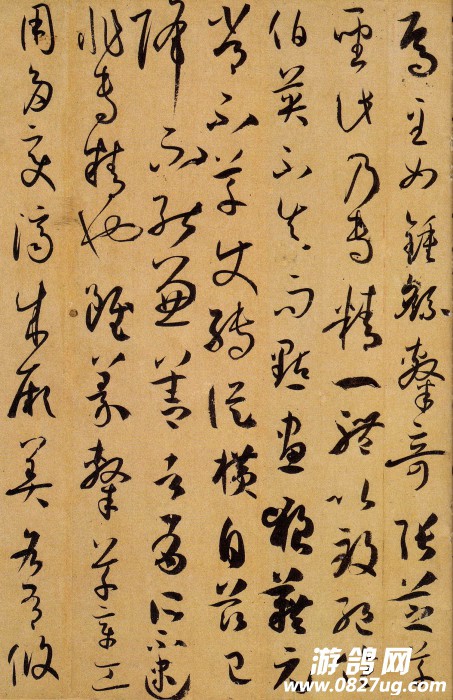 焉至如鍾繇隸奇張芝草
聖此乃專精一體以致絕倫
伯英不真而點畫狼藉元
常不草使轉縱橫自茲已
降不能兼善者有所不逮
非專精也雖篆隸草章工
用多變濟成厥美各有攸
游鸽网
www.0827ug.com